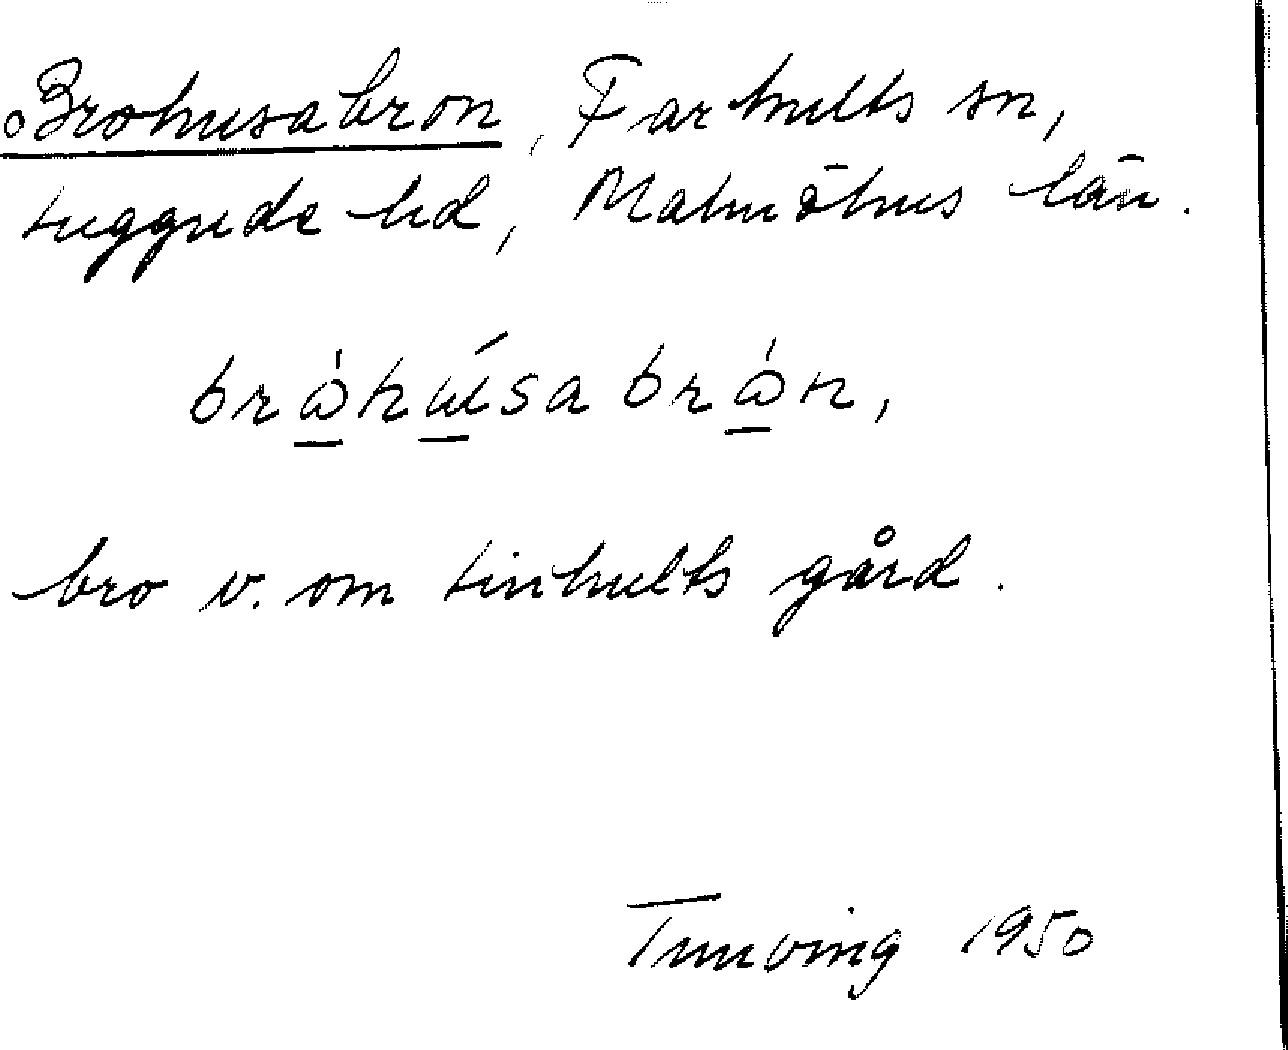 Brohusabron, Farhults sn,
Luggude hd, Malmöhus län.
bråhúsabrån,
bro v. om Linhults gård.
Tunving 1950